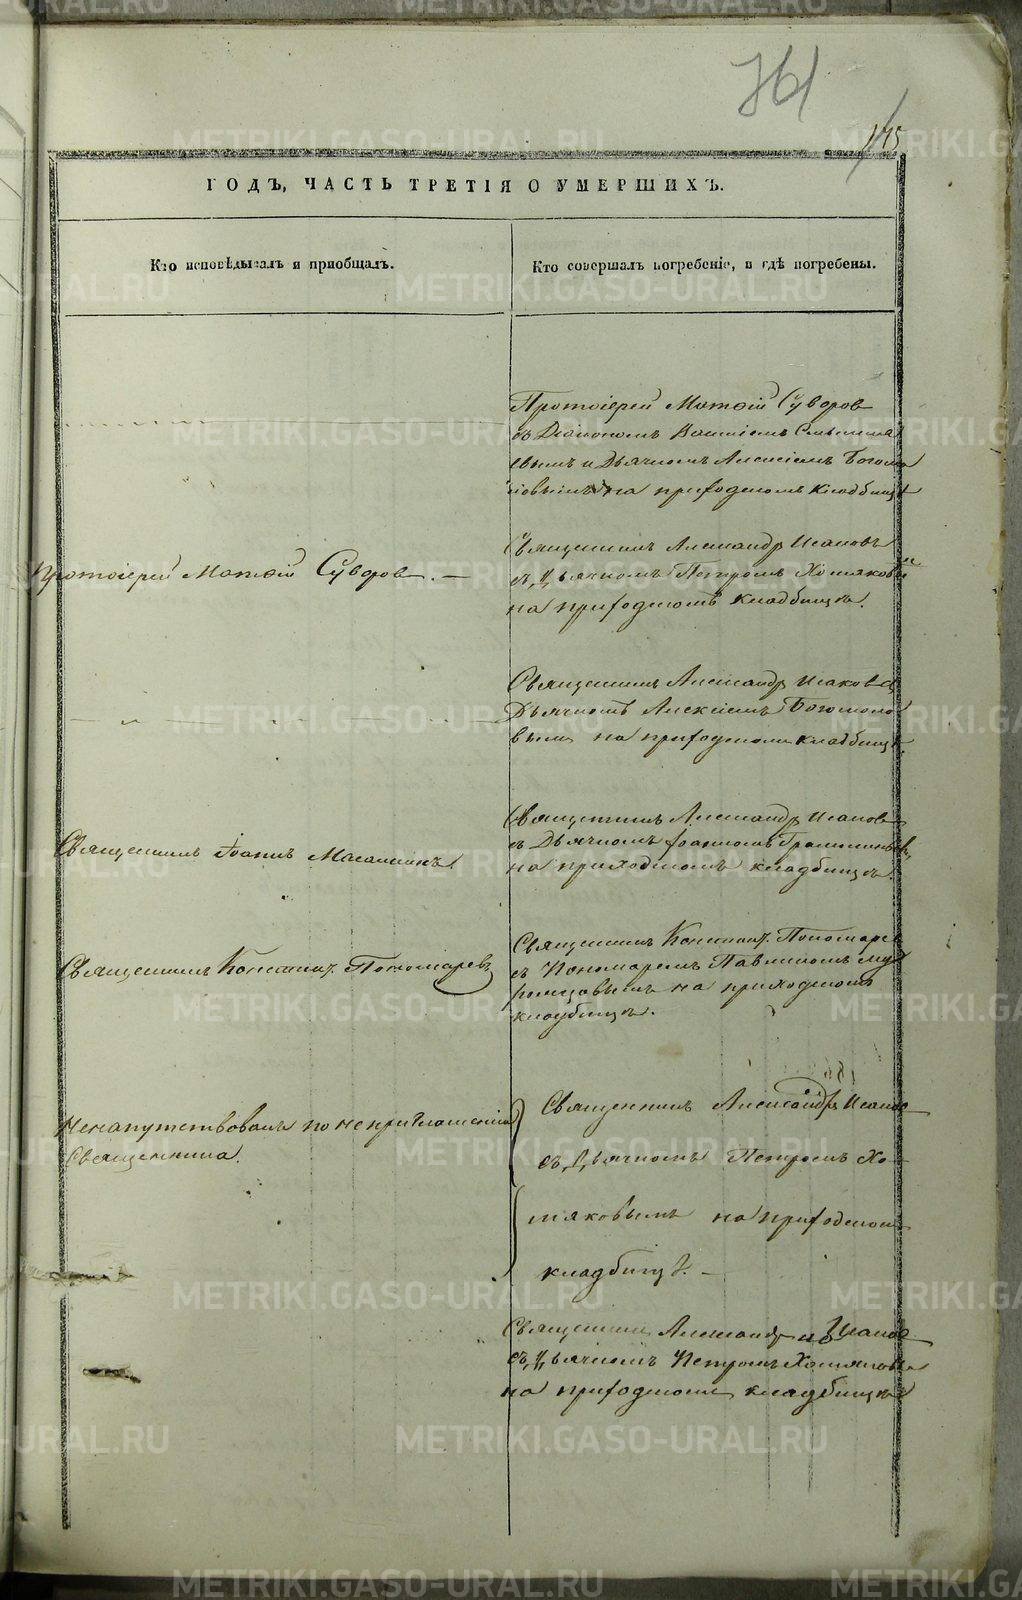 761
175
ГОДЪ, ЧАСТЬ ТРЕТІЯ О УМЕРШИХЪ.
Кто исповѣдывалъ и пріобщалъ.
Кто совершалъ погребеніе, и гдѣ погребены.
Протоіерей Матѳій Суворов
съ Діакономъ
и Дьячкомъ Алексіемъ Богомо
ловымъ на приходскомъ кладбищѣ
Протоіерей Матѳій Суворов. —
Священникъ Александръ Исаковъ
съ Дьячкомъ Петромъ Хомяковым
на приходскомъ кладбищѣ.
Священникъ Александръ Исаков съ
Дьячкомъ Алексіемъ Богомоло
вымъ на приходскомъ кладбищѣ.
Священникъ Іоаннъ
Священникъ Александръ Исаков
съ Дьячкомъ Іоанномъ
на приходскомъ кладбищѣ.
Священникъ Констант. Пономаревъ
Священникъ Констант. Пономарев
съ Пономаремъ Павлиномъ Му
ромцовымъ на приходскомъ
кладбищѣ.
Ненапутствованъ по неприглашенію
Священника.
Священникъ Александръ Исаков
съ Дьячкомъ Петромъ Хо-
мяковымъ на приходском
кладбищѣ. —
Священник Александр Исаков
съ Дьячкомъ Петромъ Хомяковым
на приходском кладбищѣ
METRIKI.GASO-URAL.RU